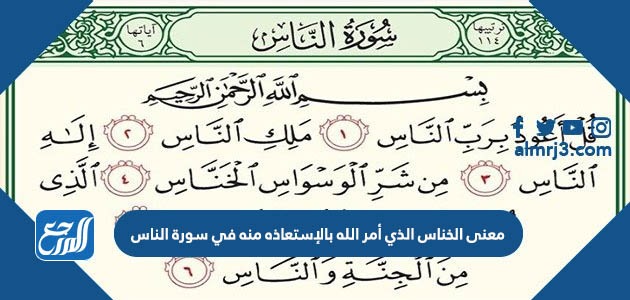 ترتيبها ١١٤
سُورَةُ النَّاسِ
آياتها ٦
بِسْمِ اللَّهِ الرَّحْمَٰنِ الرَّحِيمِ
قُلْ أَعُوذُ بِرَبِّ النَّاسِ ١ مَلِكِ النَّاسِ ٢ إِلَٰهِ
النَّاسِ ٣ مِن شَرِّ الْوَسْوَاسِ الْخَنَّاسِ ٤ الَّذِي
almrj3.com
معنى الخناس الذي أمر الله بالإستعاذه منه في سورة الناس
المرجع
مِنَ الْجِنَّةِ وَالنَّاسِ ٦